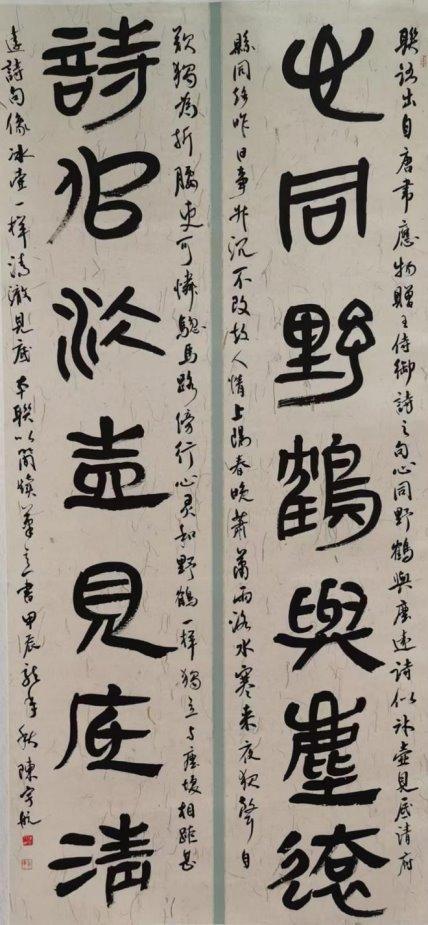 心同野鶴與塵遠
詩似冰壺見底清
聯語出自唐韦應物贈王侍御詩之句心同野鶴與塵遠詩似冰壺見底清府
縣同趋昨日事升沉不改故人情上陽春晚萧萧雨洛水寒来夜犹聲自
歎獨為折腰吏可憐驄馬路傍行心灵和野鶴一样獨立与塵壤相距甚
遠詩句像冰壶一样清澈見底本聯以简牍筆意書甲辰龍年秋陳宇航